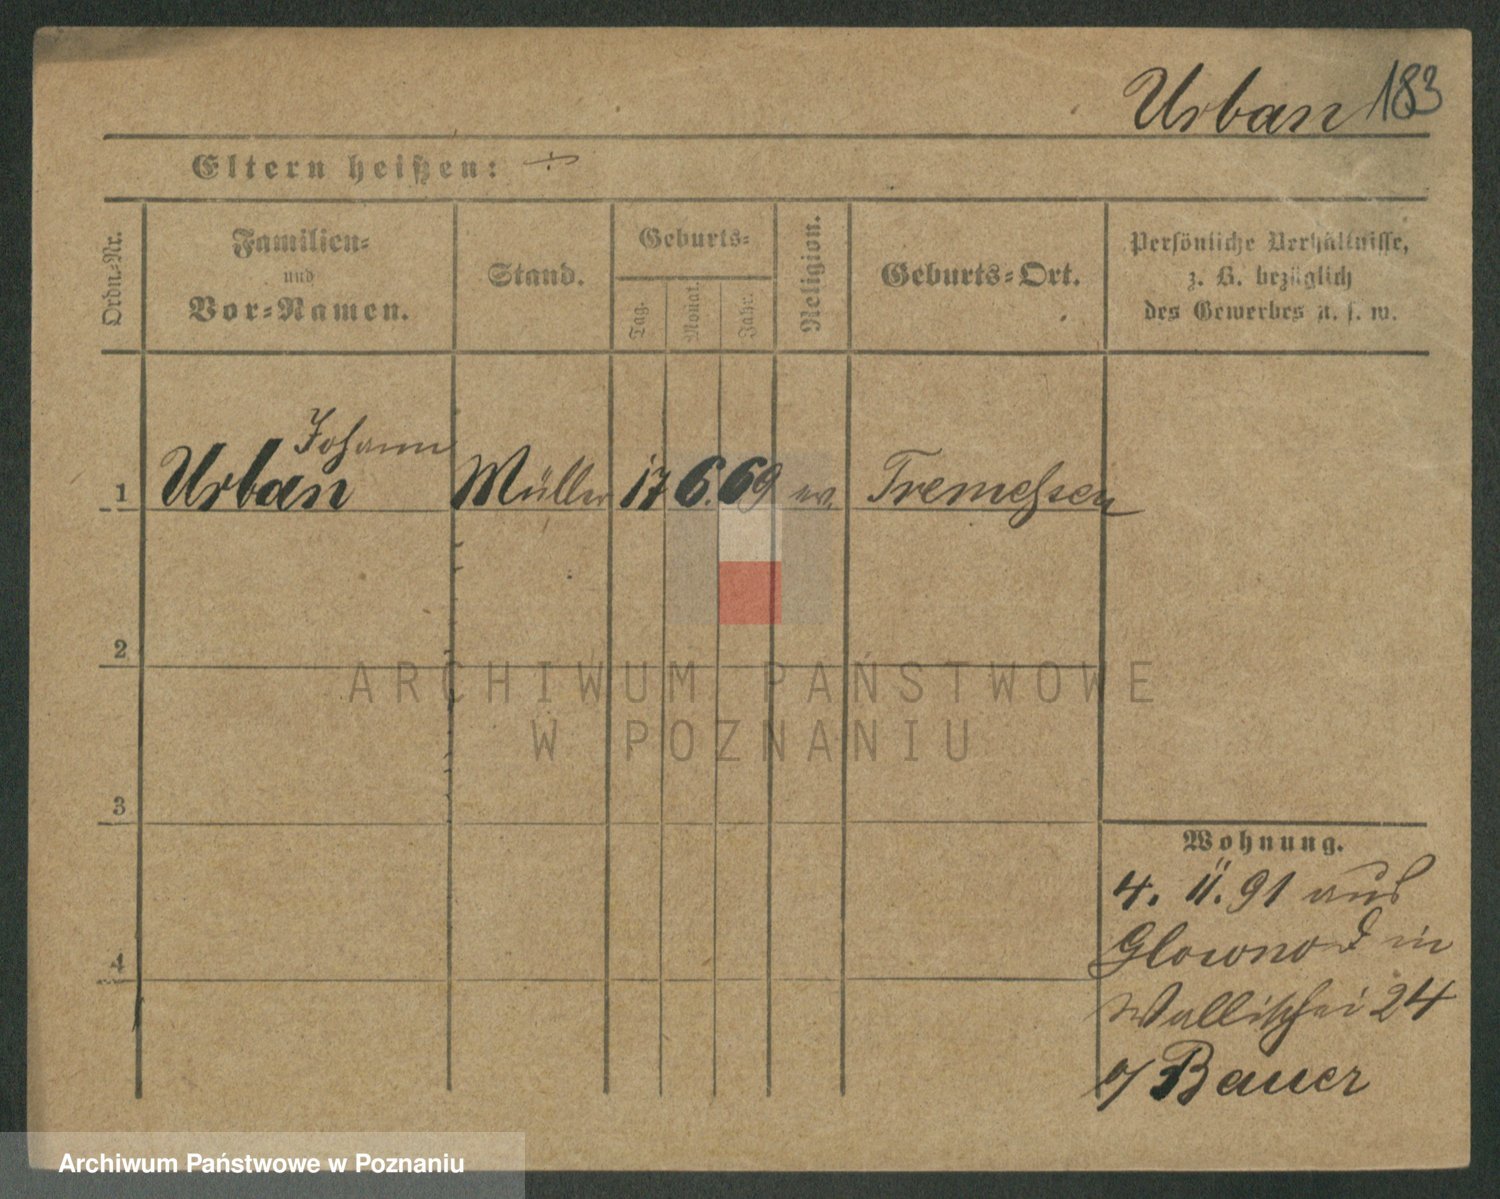 Urban 183
Eltern heißen: ÷
Ordn=Nr.
Familien=
und
Vor=Namen.
Stand.
Geburts=
Tag.
Monat.
Jahr.
Religion.
Geburts=Ort.
Persönliche Verhältnisse,
z. B. bezüglich
des Gewerbes u. s. w.
Johann
1 Urban Müller 17 6. 69 ev. Tremessen
2
3
4
Wohnung.
4. 11. 91 aus
Glowno in
Wallischei 24
b/ Bauer
ARCHIWUM PAŃSTWOWE
W POZNANIU
Archiwum Państwowe w Poznaniu